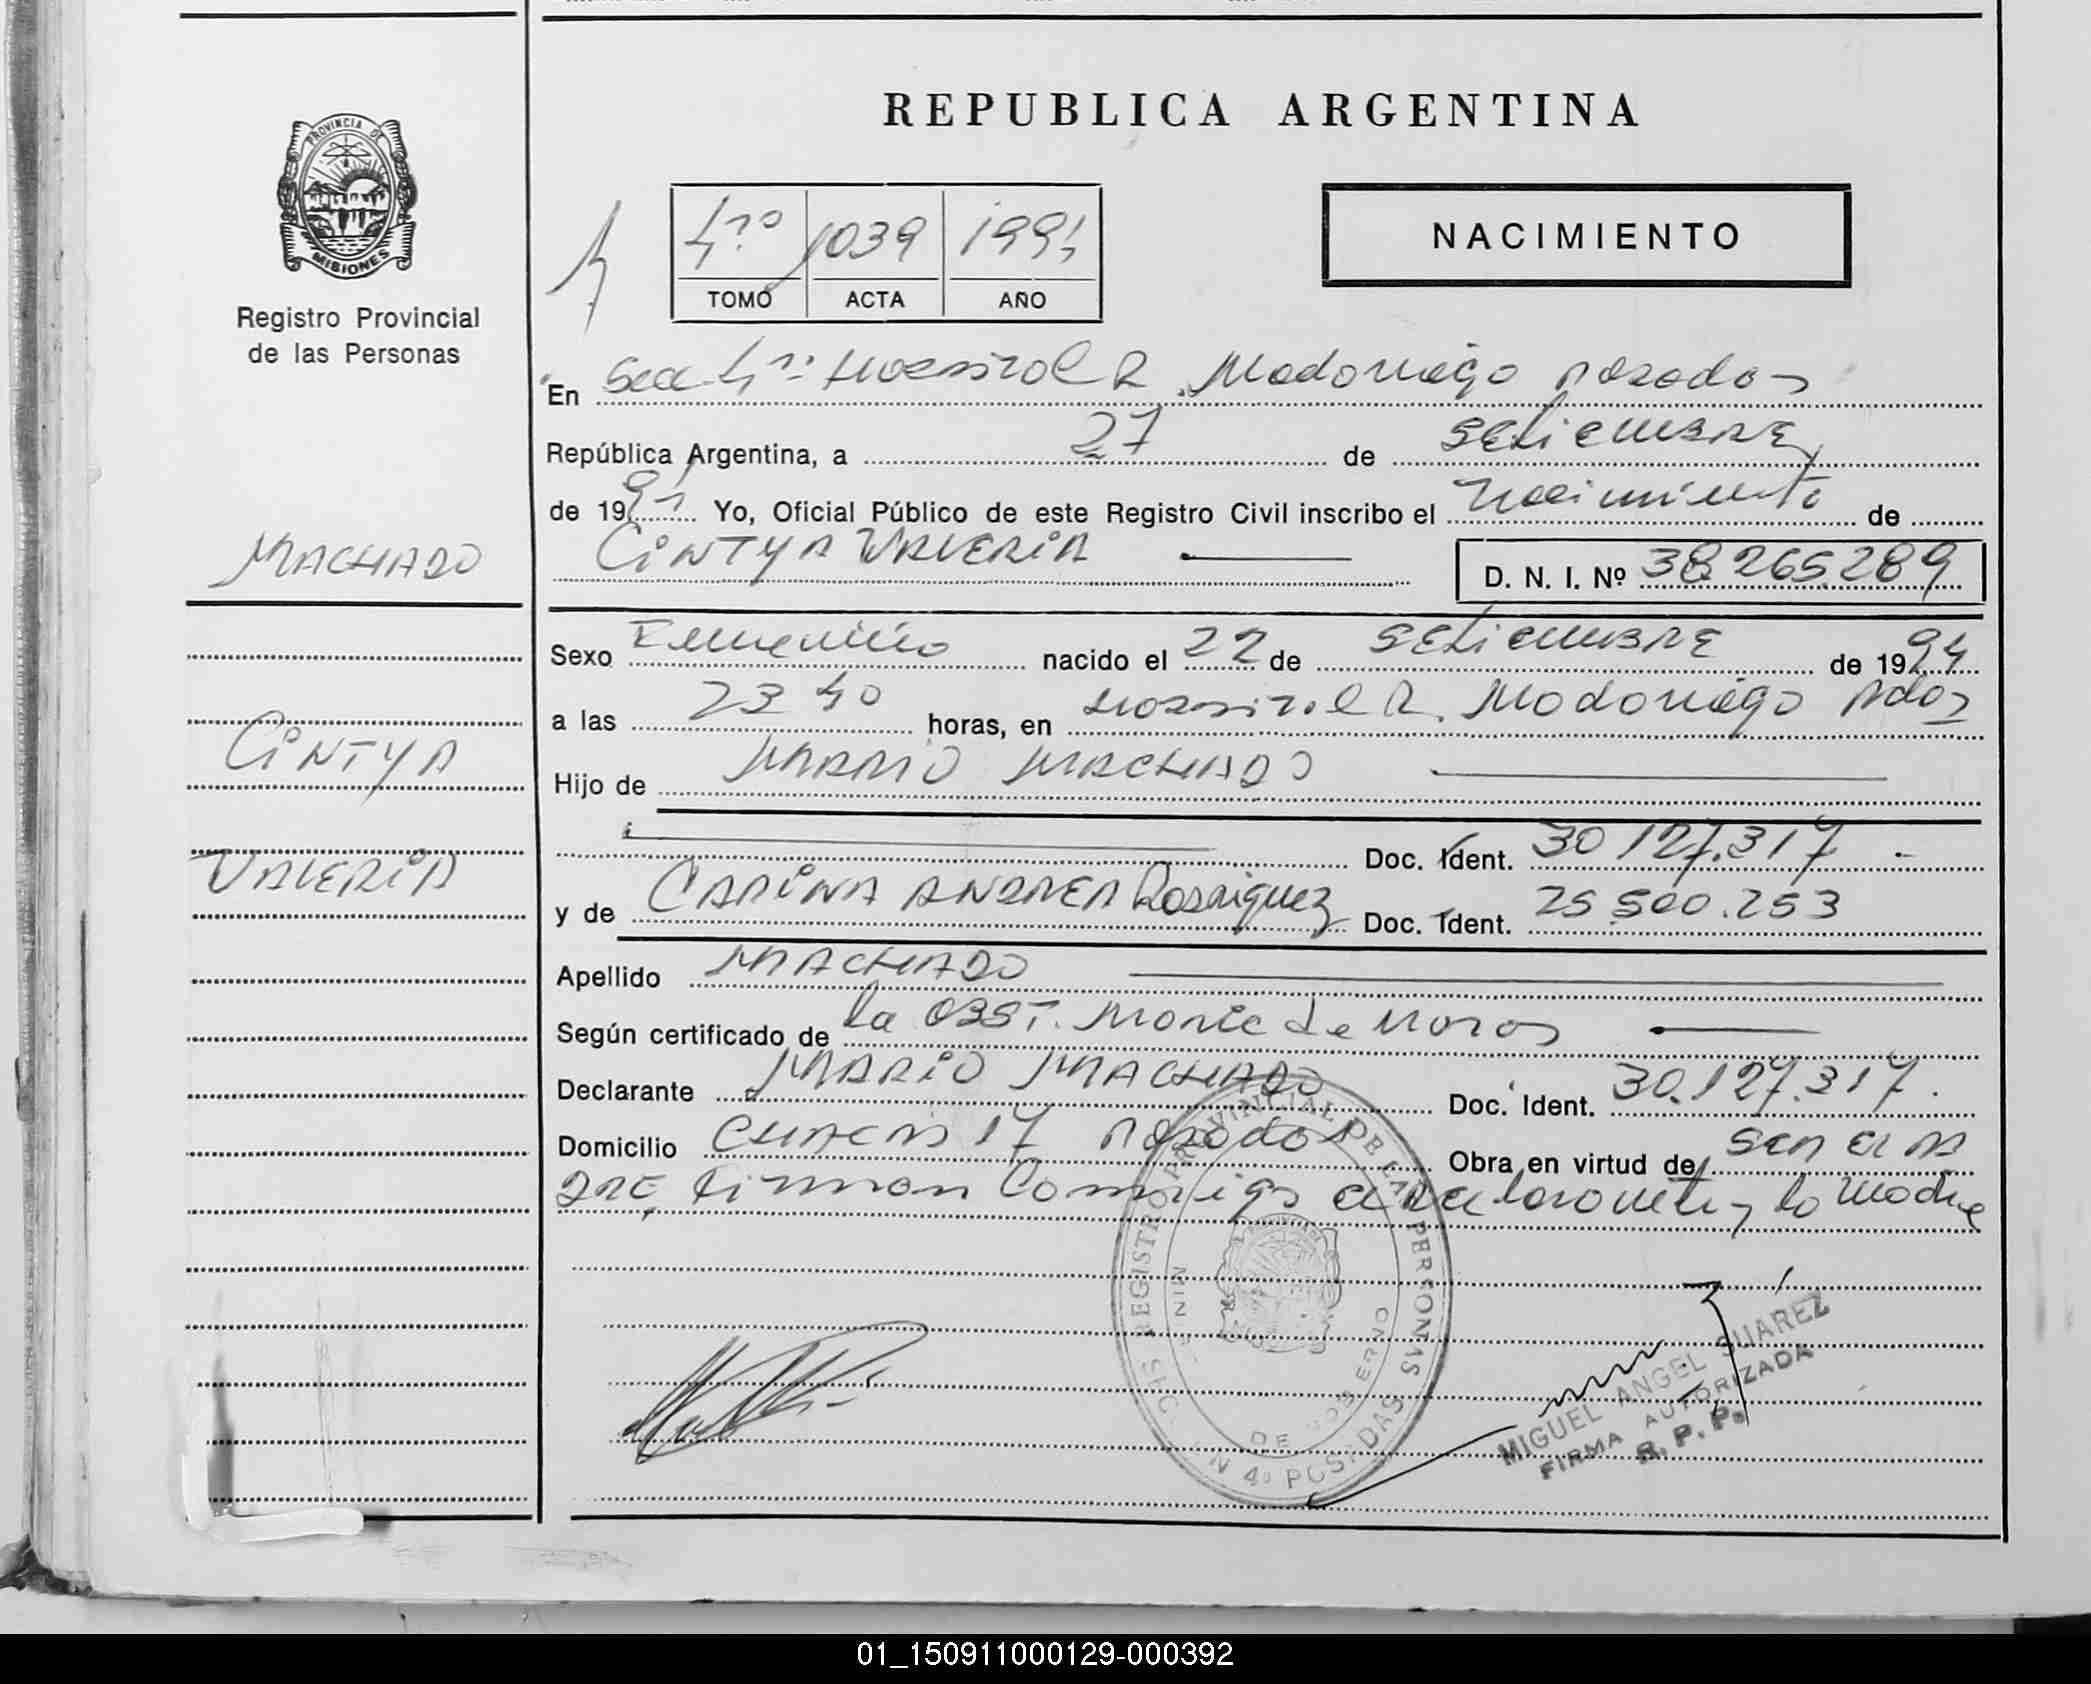 REPUBLICA ARGENTINA
PROVINCIA DE MISIONES
Registro Provincial
de las Personas
4to 1039 1994
TOMO ACTA AÑO
NACIMIENTO
En Secc. 4ta Hospital R. Madariaga Posadas
República Argentina, a 27 de SEtiEMBRE
de 1994 Yo, Oficial Público de este Registro Civil inscribo el Nacimiento de
MACHADO
CiNTYA VALERIA D. N. I. Nº 38.265.289
Sexo Femenino nacido el 22 de SEtiEMBRE de 1994
a las 23 40 horas, en Hospital R. Madariaga Pdas
CiNTYA
Hijo de MARIO MACHADO
Doc. Ident. 30.127.317
VALERIA
y de CARiNA ANDREA Rodriguez Doc. Ident. 25.500.253
Apellido MACHADO
Según certificado de la OBST.
Declarante MARiO MACHADO Doc. Ident. 30.127.317.
Domicilio 17 Posadas Obra en virtud de SER EL PA
DRE, Firman Conmigo el declarante y la Madre
REGISTRO PROVINCIAL DE LAS PERSONAS
DE GOBIERNO
4º POSADAS
MIGUEL ANGEL SUAREZ
FIRMA AUTORIZADA
R.P.P.
01_150911000129-000392